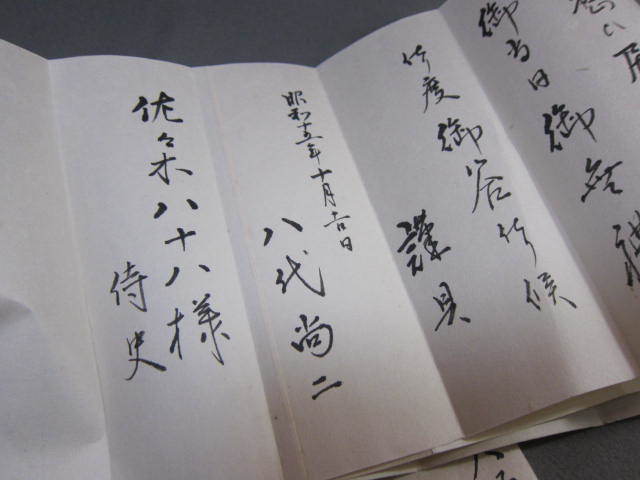 御当日御無礼
仕度御容仕候
謹具
昭和十五年十月吉日
八代尚二
佐々木八十八様
侍史